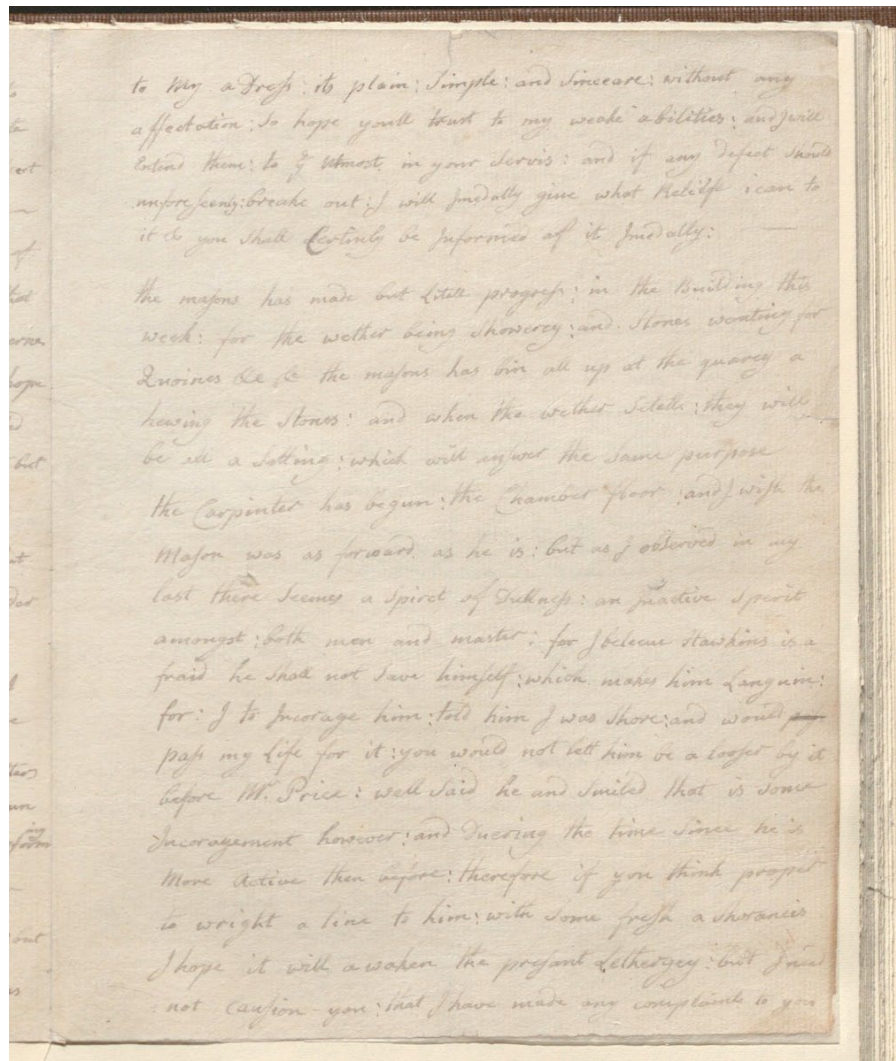 to My aDress: its plain: Simple: and Sinceare: without any
affectation: So hope youll trust to my weake abilities: and I will
Extend them: to ye Utmost in your Servis: and if any defect Should
unforeseenly: breake out: I will Imedatly give what Relife i can to
it & you Shall Certinly be Informed of it Imedatly: —
the masons has made but Litell progress: in the Building this
week: for the wether being Showerey: and Stones wanting for
Quoines &c &c the masons has bin all up at the quarey a
hewing the Stones: and when the wether Setells: they will
be all a Setting: which will answer the Same purpose
the Carpinter has begun: the Chamber floor: and I wish the
Mason was as forward as he is: but as I observed in my
last there Seemes a Spiret of Dullness: an Inactive Sperit
amongst: both men and master: for I beleave Hawkins is a
fraid he Shall not Save himself: which makes him Languin:
for: I to Incorage him: told him I was Shore: and would
pass my Life for it: you would not lett him be a looser by it
before Mr. Price: well Said he and Smiled that is Some
Incoragement however: and Duering the time Since he is
More Active then before: therefore if you think proper
to wright a line to him: with Some fresh a Shorances
I hope it will awaken the present Lethergey: but I need
not Causion you: that I have made any complaints to you